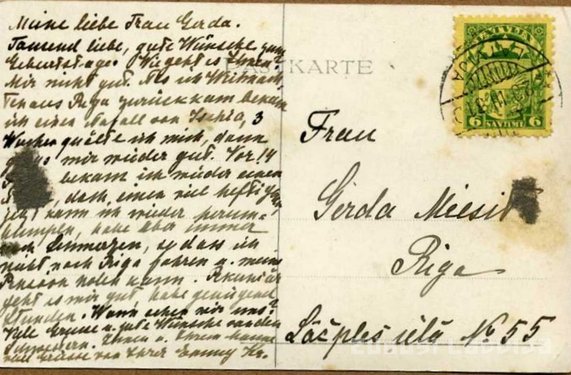 Meine liebe Frau Gerda.
Tausend liebe, gute Wünsche zum
Geburtstage. Wie geht es Ihnen?
Mir nicht gut. Als ich Weihnach-
ten aus Riga zurückkam bekam
ich einen Anfall von Ischia, 3
Wochen quälte ich mich, dann
mir wieder gut. Vor 14
bekam ich wieder einen
doch, einen viel heftigeren
jetzt kann ich wieder herum-
humpeln, habe aber immer
noch Schmerzen, so dass ich
nicht nach Riga fahren u. meine
Pension holen kann. Pekuniär
geht es mir gut, habe genügend
Stunden. Wann sehen wir uns?
Viele Grüsse u. gute Wünsche von den
Schwestern. Ihnen u. Ihrem
Grüsse von Ihrer Emmy
POSTKARTE
LATVIJA
6 SANTIMI 6
Frau
Gerda
Riga
Lāčplēš ielā No 55